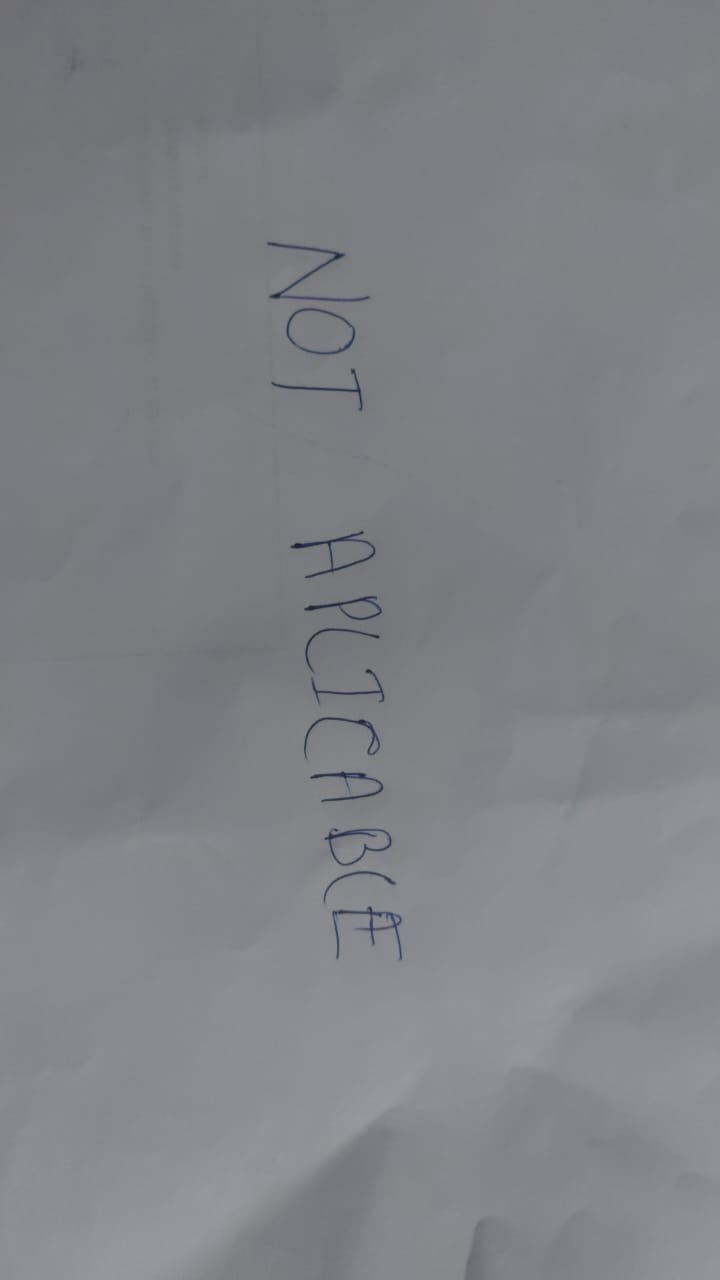 NOT APLICABLE